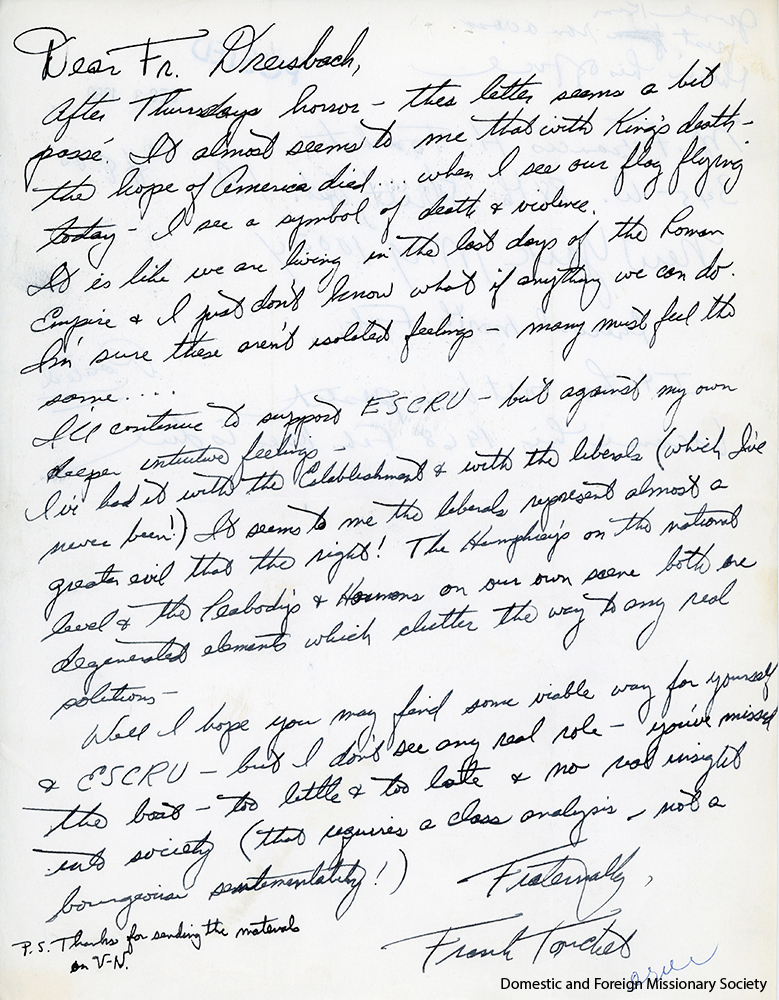 Dear Fr. Dreisbach,
After Thursdays horror – this letter seems a bit
passé. It almost seems to me that with King's death –
the hope of America died... when I see our flag flying
today – I see a symbol of death & violence.
It is like we are living in the last days of the Roman
Empire & I just don't know what if anything we can do.
I'm sure these aren't isolated feelings – many must feel the
same....
I'll continue to support ESCRU – but against my own
deeper intuitive feelings –
I've had it with the Establishment & with the liberals (which I've
never been!) It seems to me the liberals represent almost a
greater evil that the right! The Humphrey's on the national
level & the Peabody's & Hormons on our own scene both are
degenerated elements which clutter the way to any real
solutions –
Well I hope you may find some viable way for yourself
& ESCRU – but I don't see any real role – you've missed
the boat – too little & too late & no real insight
into society (that requires a class analysis – not a
bourgeoise sentementality!)
Fraternally,
Frank
P.S. Thanks for sending the materials
on V-N.
Domestic and Foreign Missionary Society